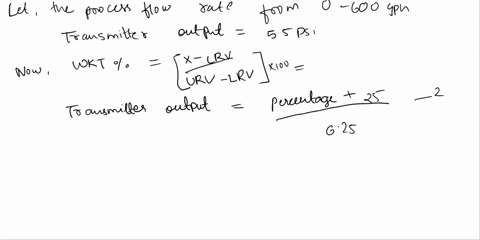 Let, the process flow rate from 0-600 gph
Transmitter output = 55 Psi
Now, WKT % = [X - LRV / URV - LRV] x100 =
Transmitter output = Percentage + 25 / 6.25 — 2